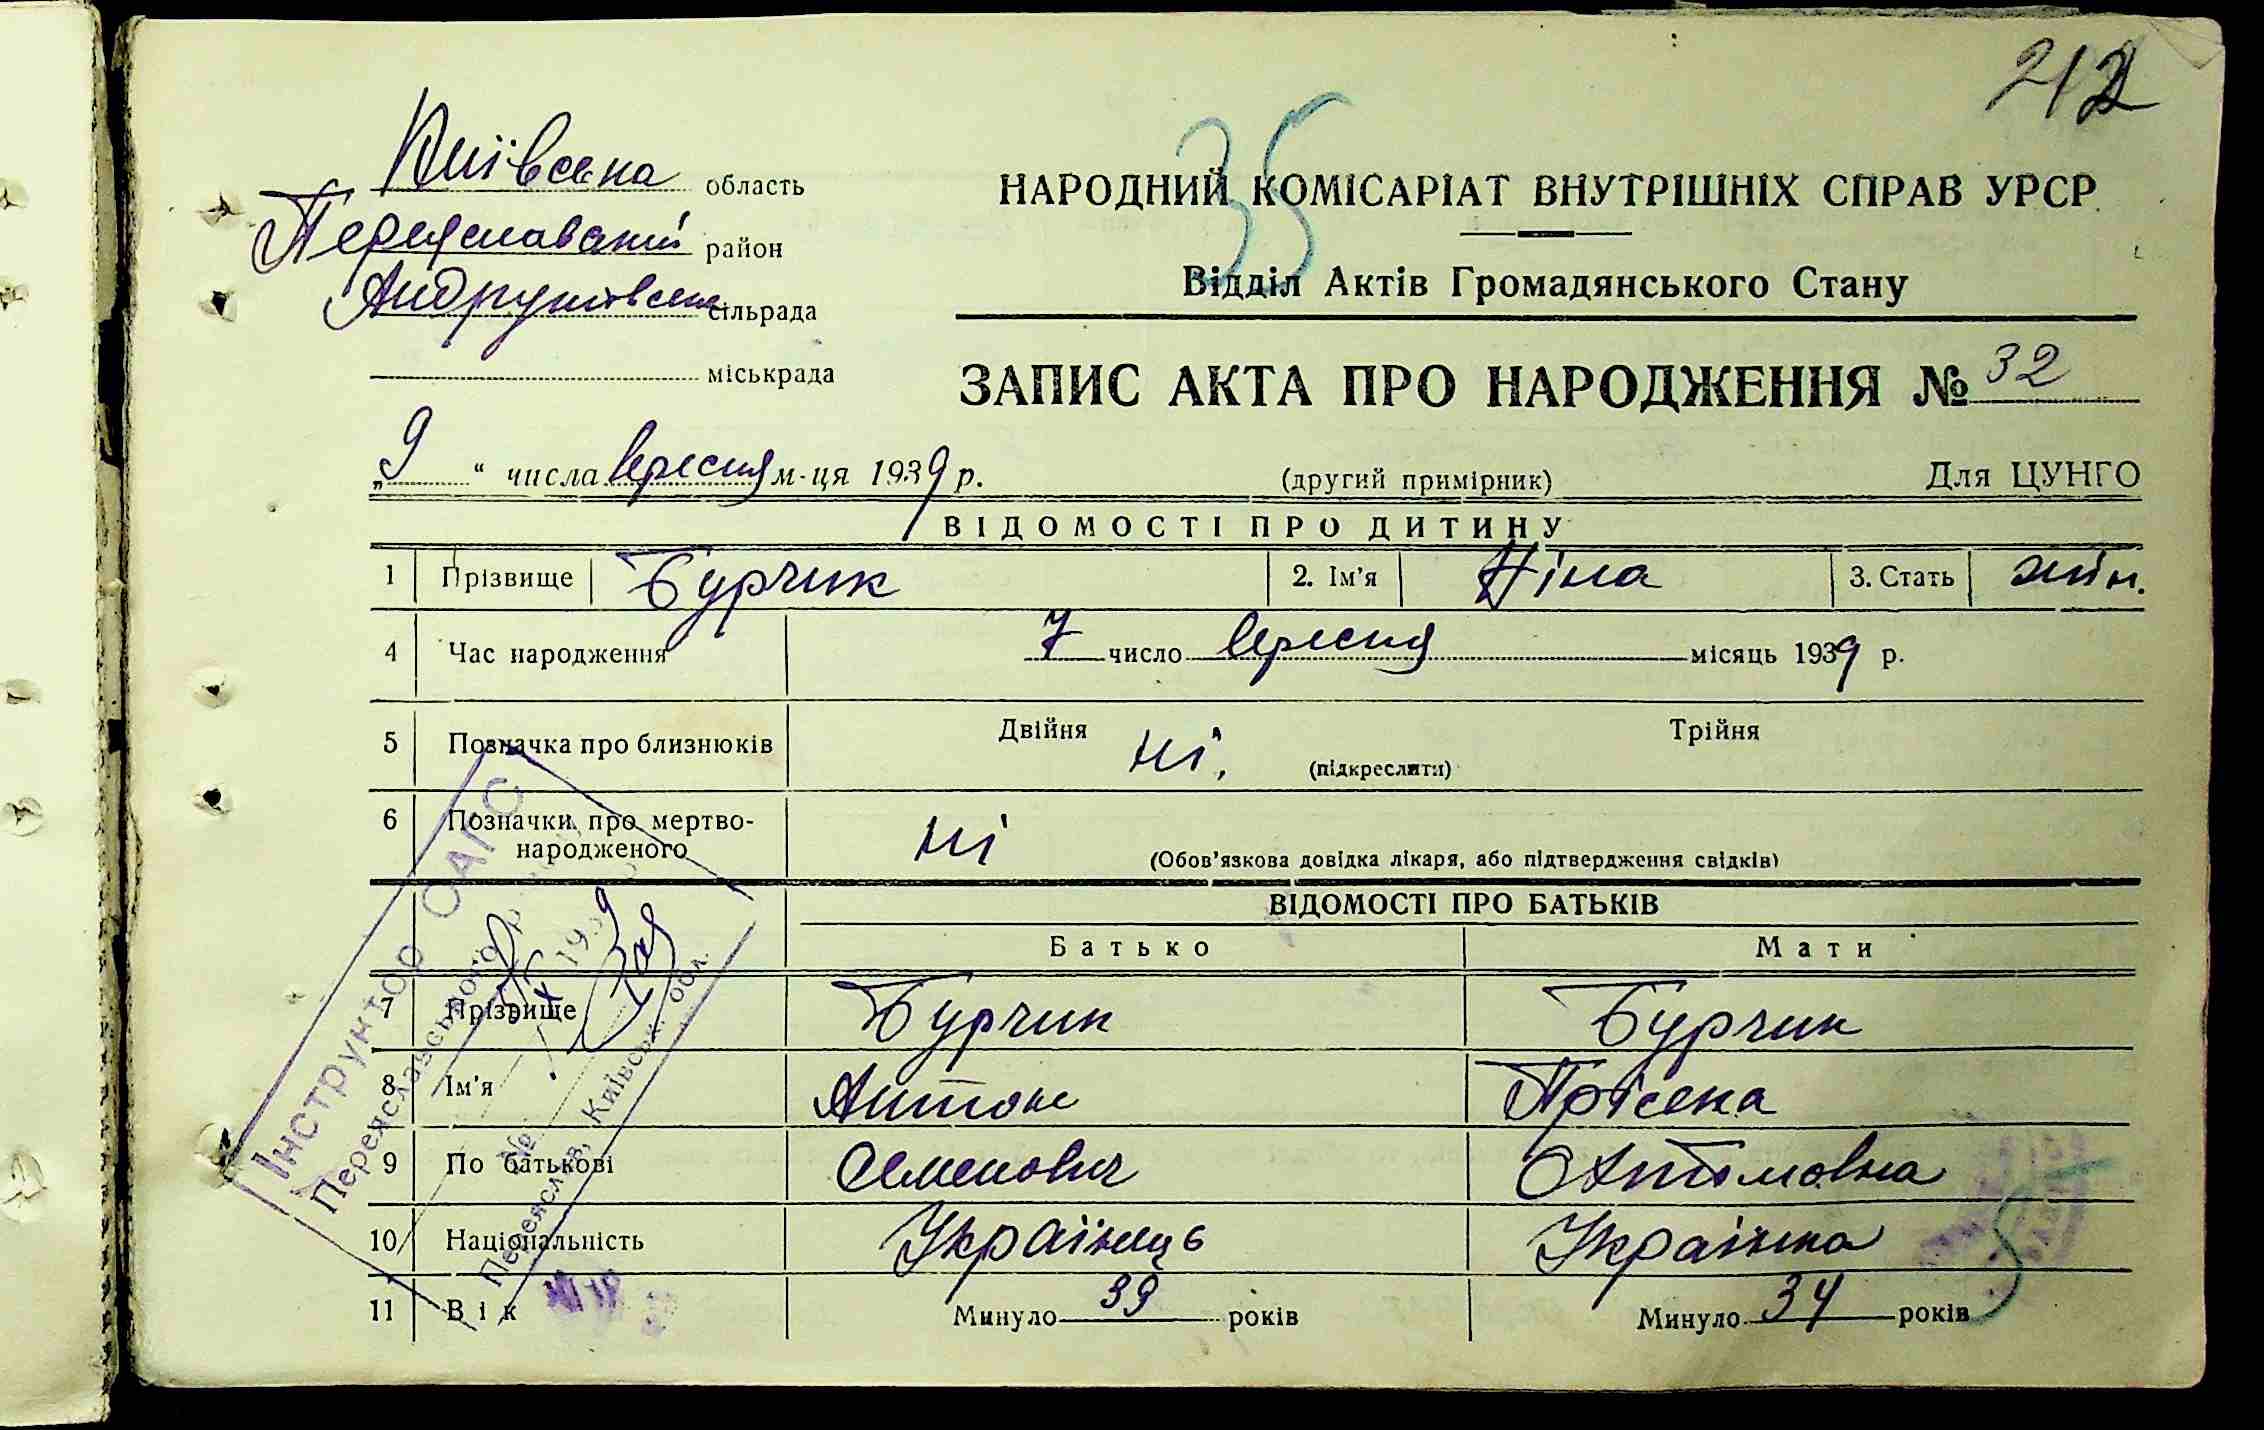 212
35
Київська область
Переяславський район
Андрушівська сільрада
міськрада
НАРОДНИЙ КОМІСАРІАТ ВНУТРІШНІХ СПРАВ УРСР
Відділ Актів Громадянського Стану
ЗАПИС АКТА ПРО НАРОДЖЕННЯ № 32
„9“ числа вересня м-ця 1939 р. (другий примірник) Для ЦУНГО
ВІДОМОСТІ ПРО ДИТИНУ
1 Прізвище Бурчик 2. Ім'я Ніна 3. Стать жін.
4 Час народження 7 число вересня місяць 1939 р.
5 Позначка про близнюків Двійня ні. (підкреслити) Трійня
6 Позначки про мертво-
народженого ні (Обов'язкова довідка лікаря, або підтвердження свідків)
ВІДОМОСТІ ПРО БАТЬКІВ
Батько Мати
7 Прізвище Бурчик Бурчик
8 Ім'я Антон Пріська
9 По батькові Семенович
10 Національність Українець Українка
11 Вік Минуло 39 років Минуло 34 років
Інструктор ОАГС
Переяславського
№
1939
Переяслав, Київськ. обл.